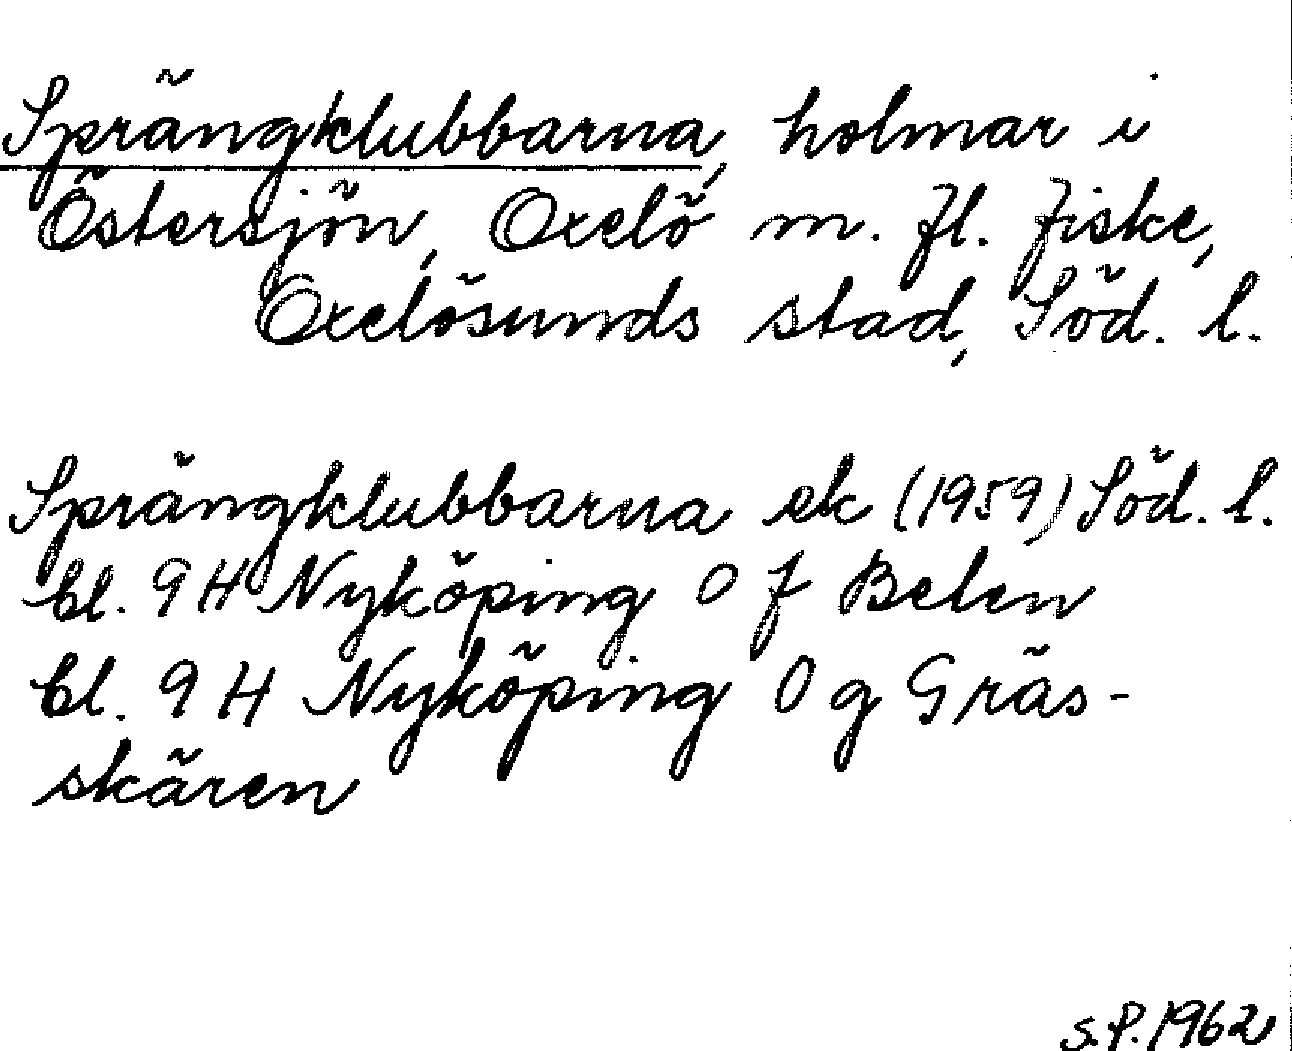 Sprängklubbarna, holmar i
Östersjön, Oxelö m. fl. fiske,
Oxelösunds stad, Söd. l.
Sprängklubbarna ek (1959) Söd. l.
bl. 9 H Nyköping 0 f Belen
bl. 9 H Nyköping 0 g Gräs-
skären
S.P. 1962